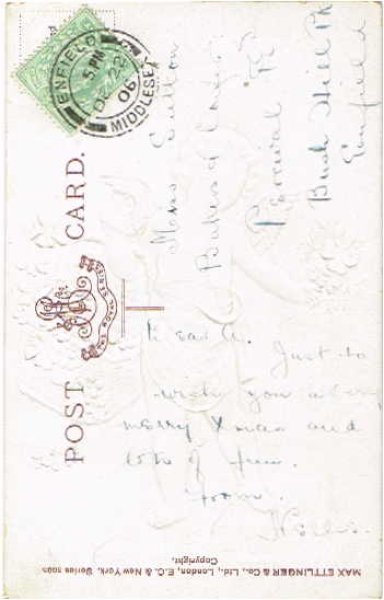 POST CARD.
THE ROYAL SERIES
ENFIELD
5 PM
DE 22
06
MIDDLESEX
Miss Sutton
Percival Rd
Bush Hill Pk
Enfield
Dear A.
Just to
wish you a very
merry Xmas and
lots of fun.
from
MAX ETTLINGER & Co., Ltd., London, E.C. & New York. Series
Copyright.